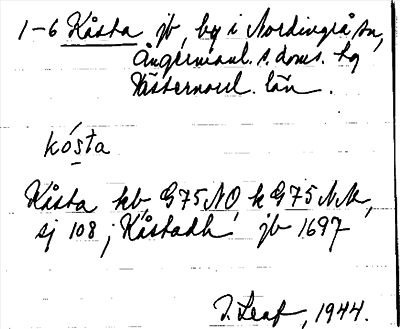 1-6 Kåsta jb, by i Nordingrå sn,
Ångermanl. s. doms. hg
Västernorrl. län.
kósta
Kåsta kb, G75NO, k G75
sj 108; Kåstadh jb 1697
I. Leaf, 1944.